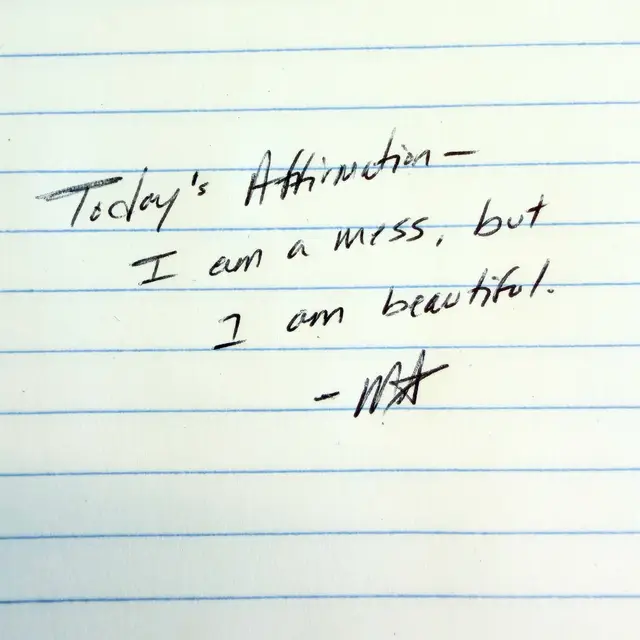 Today's Affirmation —
I am a mess, but
I am beautiful.